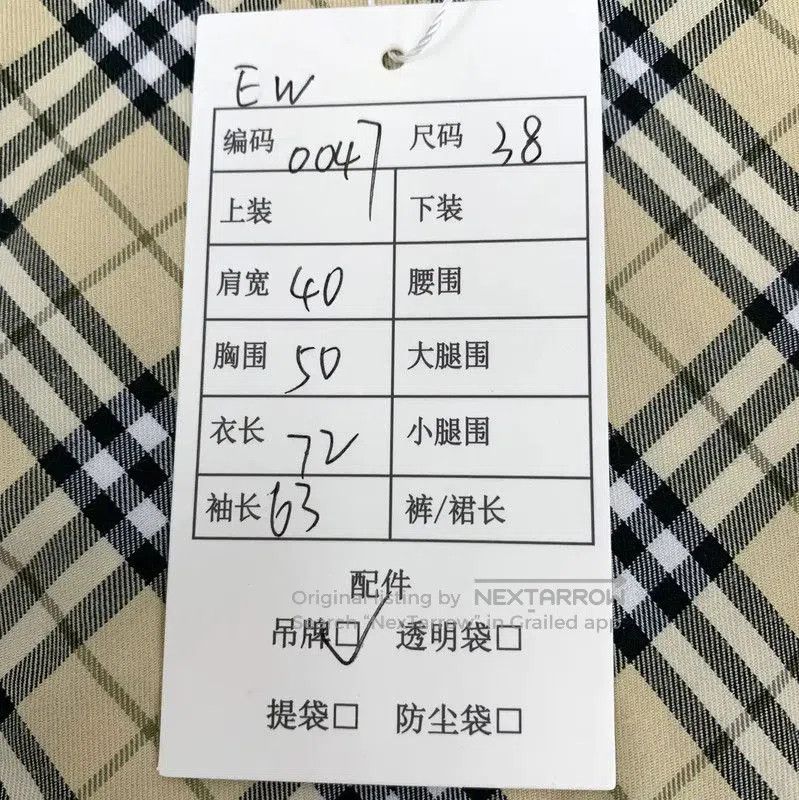 EW
编码 0047 尺码 38
上装 下装
肩宽 40 腰围
胸围 50 大腿围
衣长 72 小腿围
袖长 63 裤/裙长
配件
Original listing by NEXTARROW
Search "NexTarrow" in Grailed app
吊牌☑ 透明袋□
提袋□ 防尘袋□